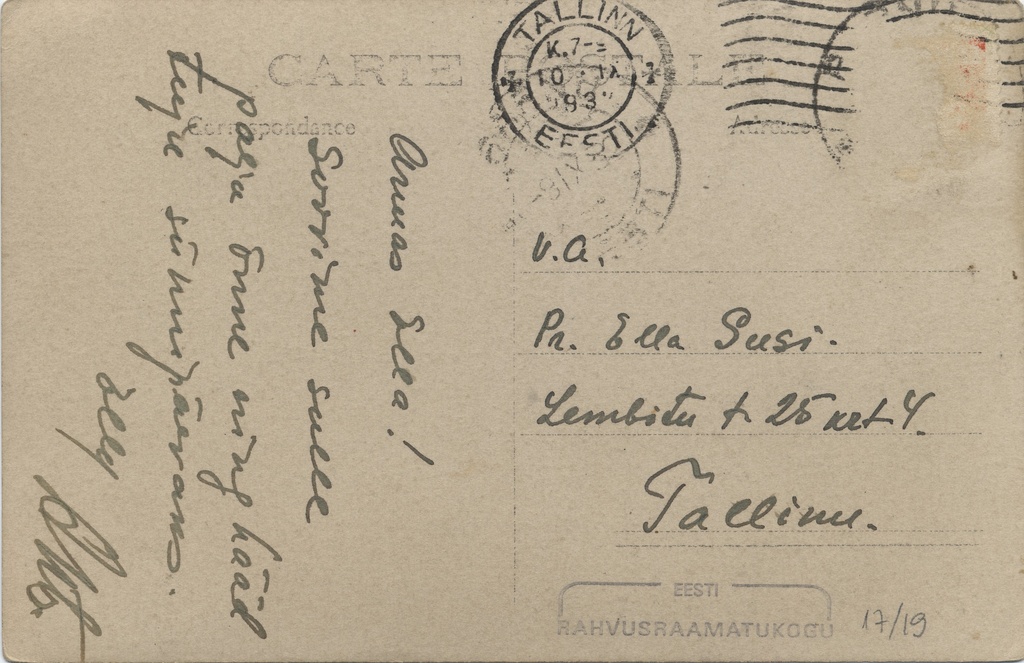 CARTE POSTALE
Correspondance
Adresse
TALLINN
K.7-
10 IX
193
EESTI
Armas Ella!
Soovime sulle
palju õnne ning hääd
tuju sünnipäevaks.
Elly
v.a.
Pr. Ella Susi.
Lembitu t 25 krt 4.
Tallinn.
EESTI
RAHVUSRAAMATUKOGU
17/19